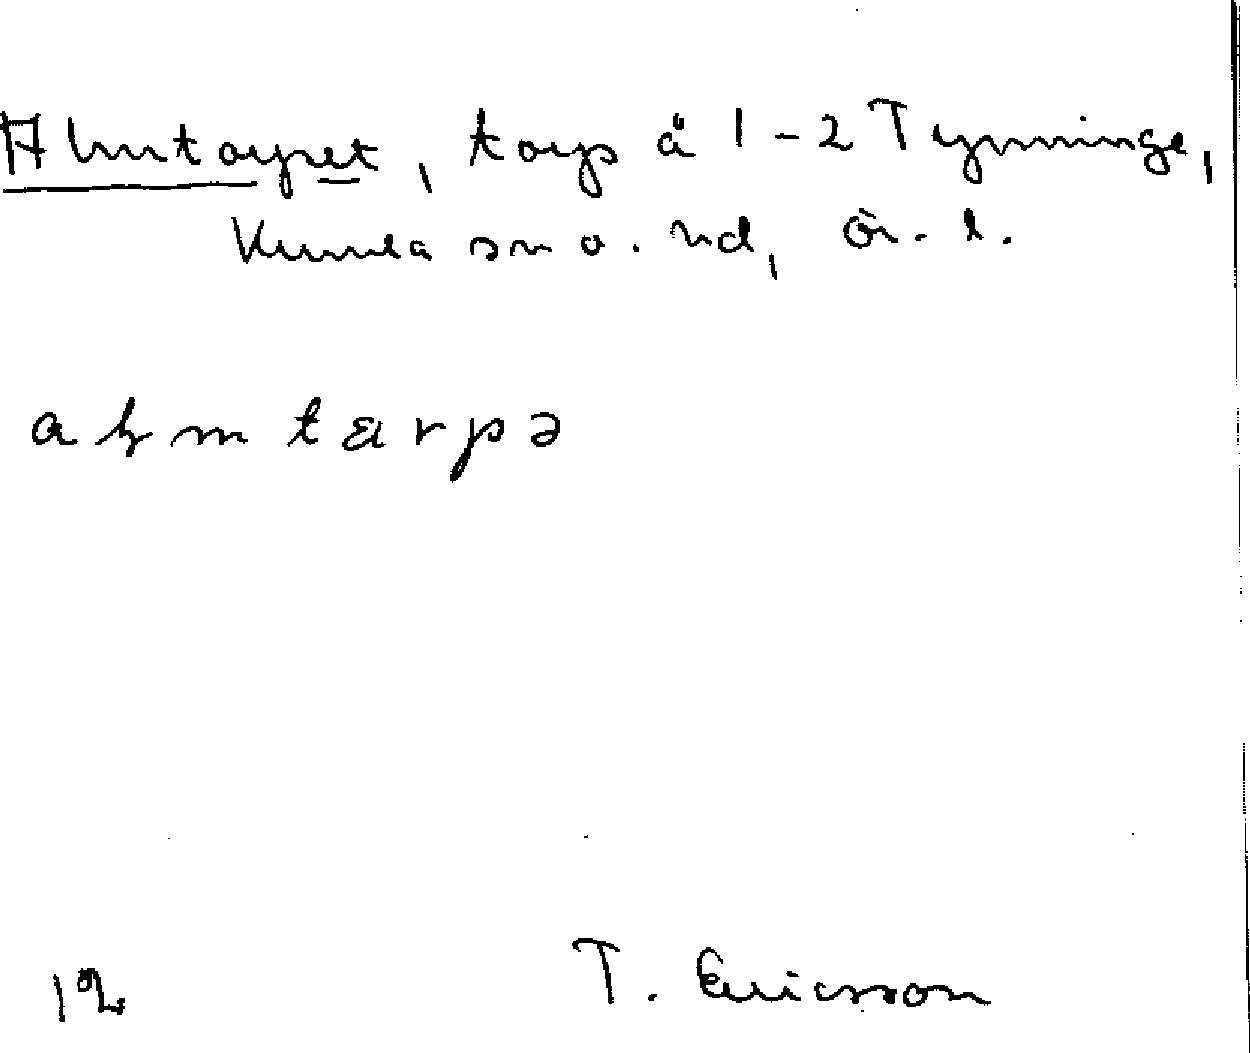 Almtorpet, torp å 1-2 Tynninge,
Kumla sn o. hd, Ör. l.
aɫmtarpə
12
T. Ericsson